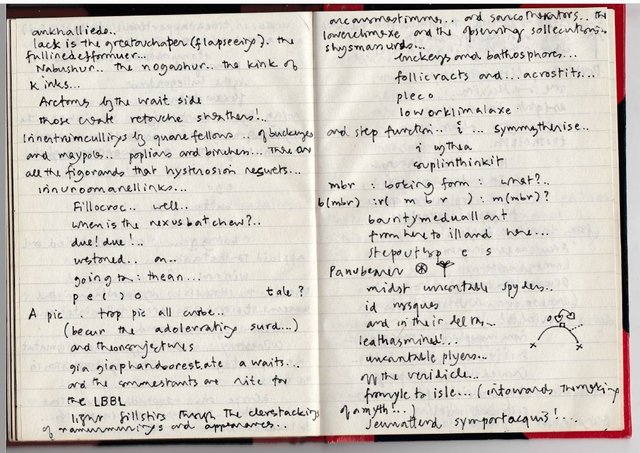 ankhalliede..
lack is the greatouchaper (flapseeiyo). the
fullinedefformuer...
Nabushur.. the nogashur.. the kink of
kinks...
Arctoms by the wait side
those create retouche sheathens!..
of buckeyes
and maypoles.. poplians and birchens...
all the figorands that hystnosion
innunoomanellinks...
Fillocroc.. well..
when is the nexus bat chew?..
due! due!..
westoned.. on..
going to: thean...
pe ( ) o tale?
A pic :. trop pic all curbe..
(becur the adolenrating surd...)
and theonconjectures
gia giaphandorestate a waits...
and the commestants are nite for
the LBBL
light fillstirs through the clenstackings
of namenummings and appearances...
and sancotheraters.. the
lowerclimaxe and the opsenning sollecutions
shysmansurds...
buckeyes and bathosphores..
follicracts and... acrostits..
pleco
loworklimalaxe
and step function.. i ... symmytherise..
i wythea
couplinthinkit
mbr : booking form : what?..
b(mbr) :r( m b r ) : m(mbr)?
bountymeduallant
from here to illand here...
stepouthrop e s
Panubearer
midst uncontable spyders..
id mosques
and in their
leathasmined!...
uncantable plyers...
off the veridicle...
fromyle to isle... (intowards themaking
of a myth!...)
symportacquis!...